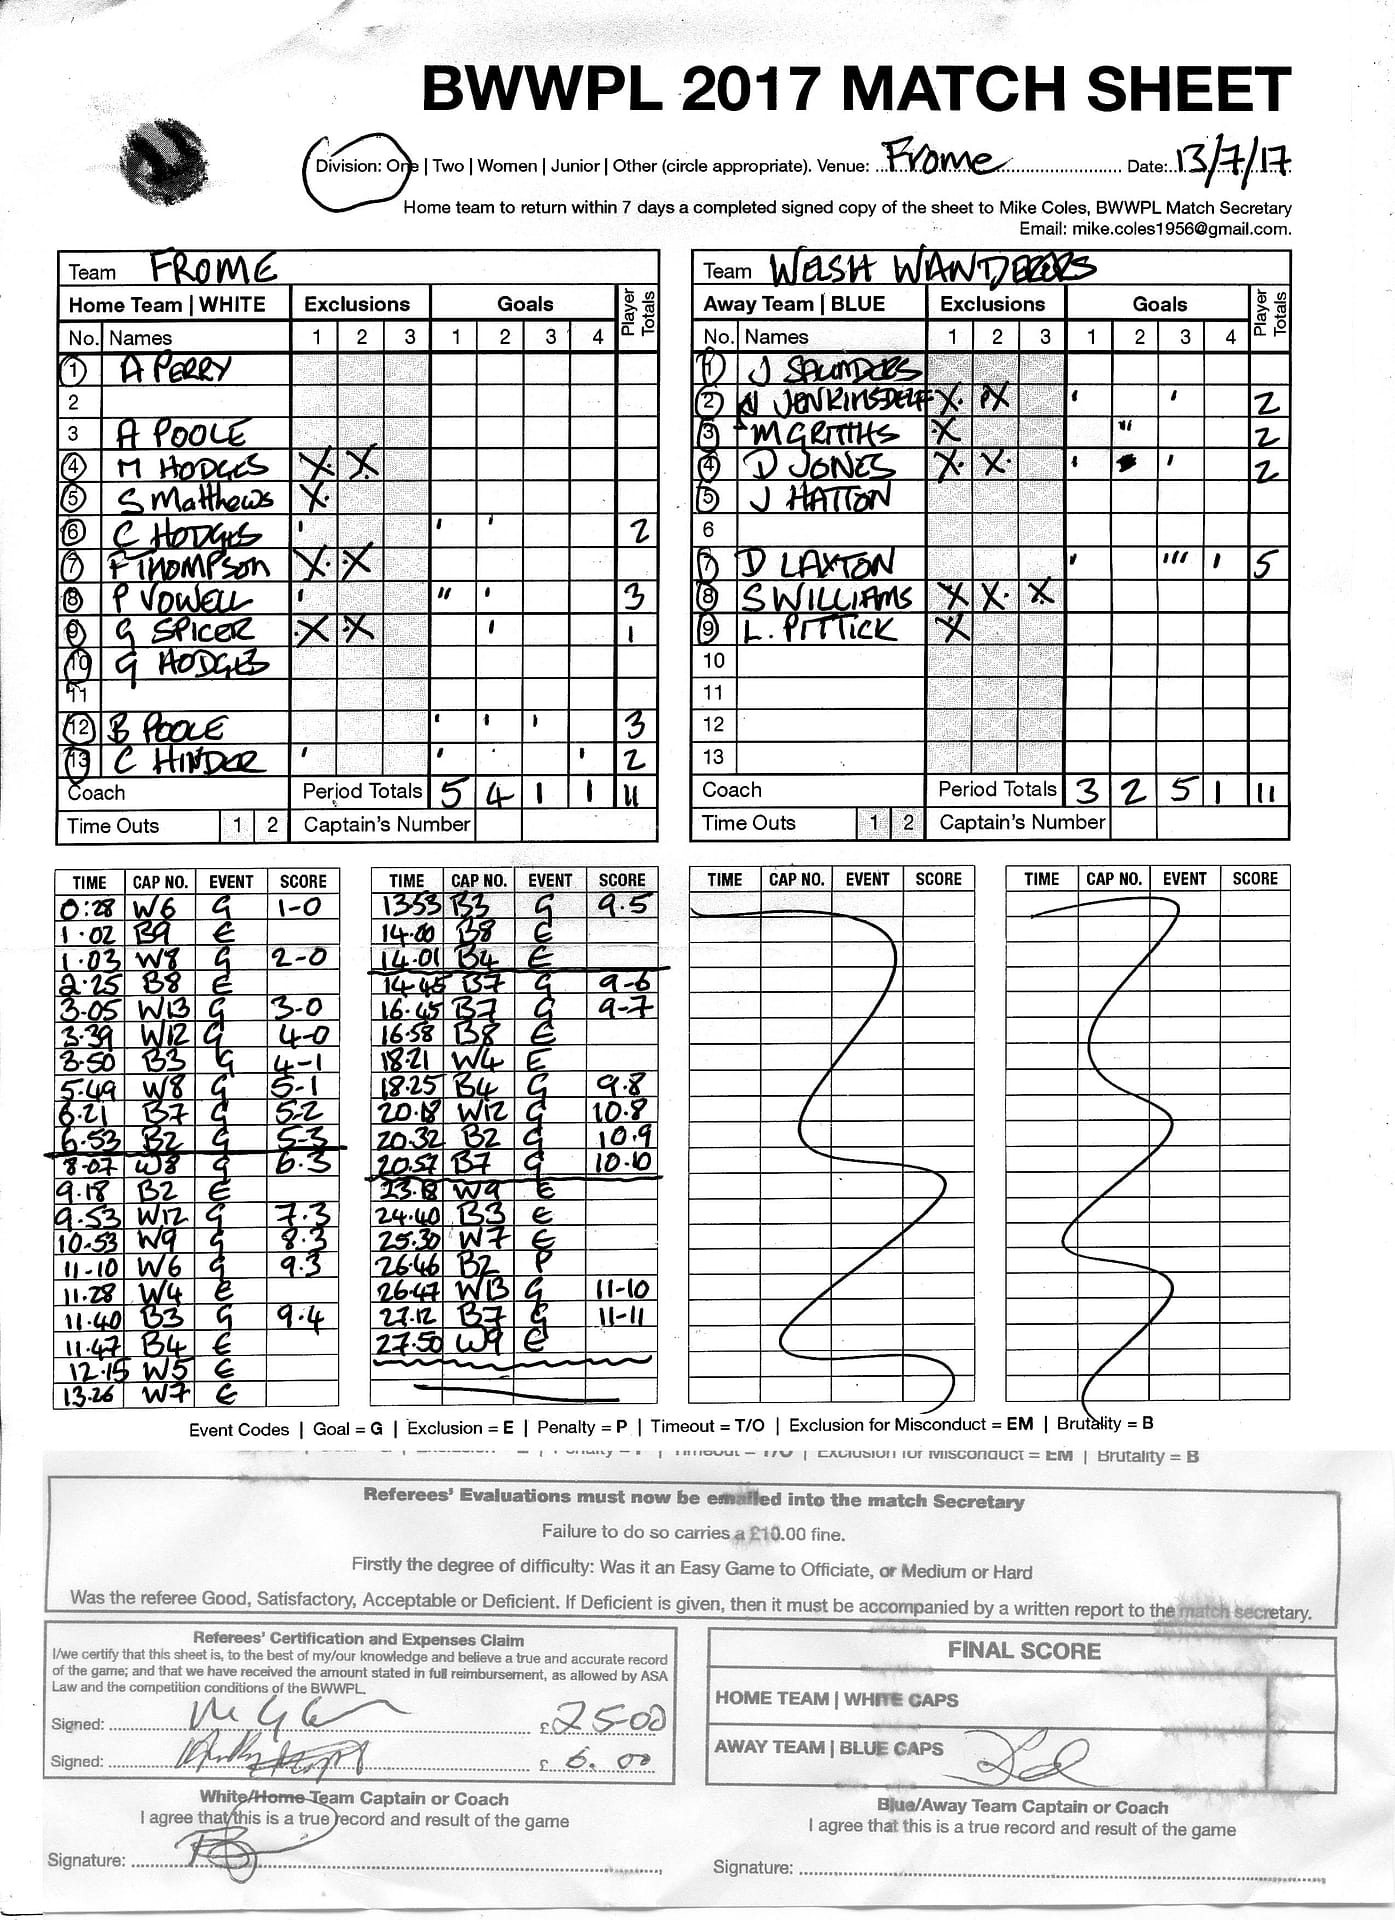 BWWPL 2017 MATCH SHEET
Division: One | Two | Women | Junior | Other (circle appropriate). Venue: Frome Date: 13/7/17
Home team to return within 7 days a completed signed copy of the sheet to Mike Coles, BWWPL Match Secretary
Email: mike.coles1956@gmail.com.
Team FROME
Home Team | WHITE Exclusions Goals Player Totals
No. Names 1 2 3 1 2 3 4
1 A PERRY
2
3 A POOLE
4 M HODGES X X
5 S Matthews X
6 C HODGES ' ' ' 2
7 F THOMPSON X X
8 P VOWELL ' " ' 3
9 G SPICER X X ' 1
10 G HODGES
11
12 B POOLE ' ' ' 3
13 C HINDER ' ' ' 2
Coach Period Totals 5 4 1 1 11
Time Outs 1 2 Captain's Number
Team WELSH WANDERERS
Away Team | BLUE Exclusions Goals Player Totals
No. Names 1 2 3 1 2 3 4
1 J SAUNDERS
2 JENKINS X X ' ' 2
3 M GRITHS X " 2
4 D JONES X X ' ' 2
5 J HATTON
6
7 D LAXTON ' ''' ' 5
8 S WILLIAMS X X X
9 L. PITTICK X
10
11
12
13
Coach Period Totals 3 2 5 1 11
Time Outs 1 2 Captain's Number
TIME CAP NO. EVENT SCORE
0:28 W6 G 1-0
1.02 B9 E
1.03 W8 G 2-0
2.25 B8 E
3.05 W13 G 3-0
3.39 W12 G 4-0
3.50 B3 G 4-1
5.49 W8 G 5-1
6.21 B7 G 5-2
6.53 B2 G 5-3
8.07 W8 G 6.3
9.18 B2 E
9.53 W12 G 7.3
10.53 W9 G 8.3
11-10 W6 G 9.3
11.28 W4 E
11.40 B3 G 9.4
11.47 B4 E
12.15 W5 E
13.26 W7 E
TIME CAP NO. EVENT SCORE
1353 B3 G 9.5
14.00 B8 E
14.01 B4 E
14.45 B7 G 9-6
16.45 B7 G 9-7
16.58 B8 E
18.21 W4 E
18.25 B4 G 9.8
20.18 W12 G 10.8
20.32 B2 G 10.9
20.57 B7 G 10.10
23.18 W9 E
24.40 B3 E
25.30 W7 E
26.46 B2 P
26.47 W13 G 11-10
27.12 B7 G 11-11
27.50 W9 E
TIME CAP NO. EVENT SCORE
TIME CAP NO. EVENT SCORE
Event Codes | Goal = G | Exclusion = E | Penalty = P | Timeout = T/O | Exclusion for Misconduct = EM | Brutality = B
Exclusion for Misconduct = EM | Brutality = B
Referees' Evaluations must now be emailed into the match Secretary
Failure to do so carries a £10.00 fine.
Firstly the degree of difficulty: Was it an Easy Game to Officiate, or Medium or Hard
Was the referee Good, Satisfactory, Acceptable or Deficient. If Deficient is given, then it must be accompanied by a written report to the match secretary.
Referees' Certification and Expenses Claim
I/we certify that this sheet is, to the best of my/our knowledge and believe a true and accurate record
of the game; and that we have received the amount stated in full reimbursement, as allowed by ASA
Law and the competition conditions of the BWWPL.
Signed: £ 25-00
Signed: £ 6.00
FINAL SCORE
HOME TEAM | WHITE CAPS
AWAY TEAM | BLUE CAPS
White/Home Team Captain or Coach
I agree that this is a true record and result of the game
Signature:
Blue/Away Team Captain or Coach
I agree that this is a true record and result of the game
Signature: